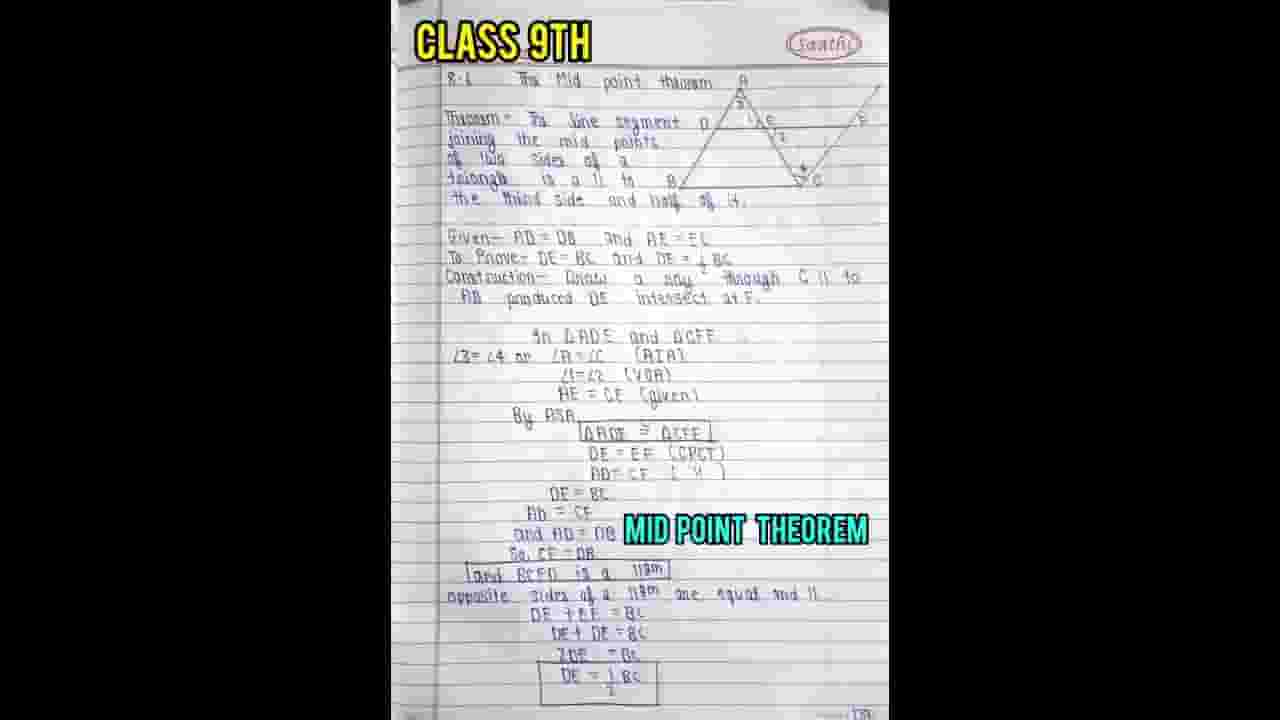 CLASS 9TH
Saathi
8.6 The Mid point theorem
A
Theorem- The line segment
D E F
joining the mid points
of two sides of a
triangle is a || to
B C
the third side and half of it.
Given- AD = DB and AE = EC
To Prove- DE = BC and DE = 1/2 BC
Construction- Draw a ray through C || to
AB produced DE intersect at F.
In ΔADE and ΔCFE
∠3 = ∠4 or ∠A = ∠C (AIA)
∠1 = ∠2 (VOA)
AE = CE (given)
By ASA
ΔADE ≅ ΔCFE
DE = EF (CPCT)
AD = CF ( " )
DE = BC
AD = CF
and AD = DB
MID POINT THEOREM
So, CF = DB
and BCFD is a ||gm
opposite sides of a ||gm are equal and ||.
DE + EF = BC
DE + DE = BC
2DE = BC
DE = 1/2 BC